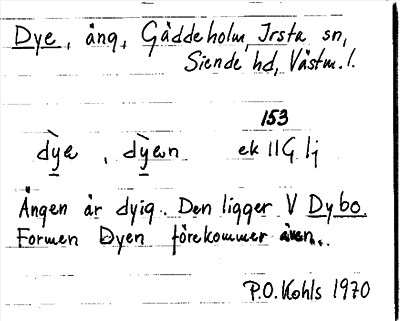 Dye, äng, Gäddeholm, Irsta sn,
Siende hd, Västm. l.
153
dỳe̠ , dỳe̠n ek 11G 1j
Ängen är dyig. Den ligger V Dybo.
Formen Dyen förekommer även.
P.O. Kohls 1970